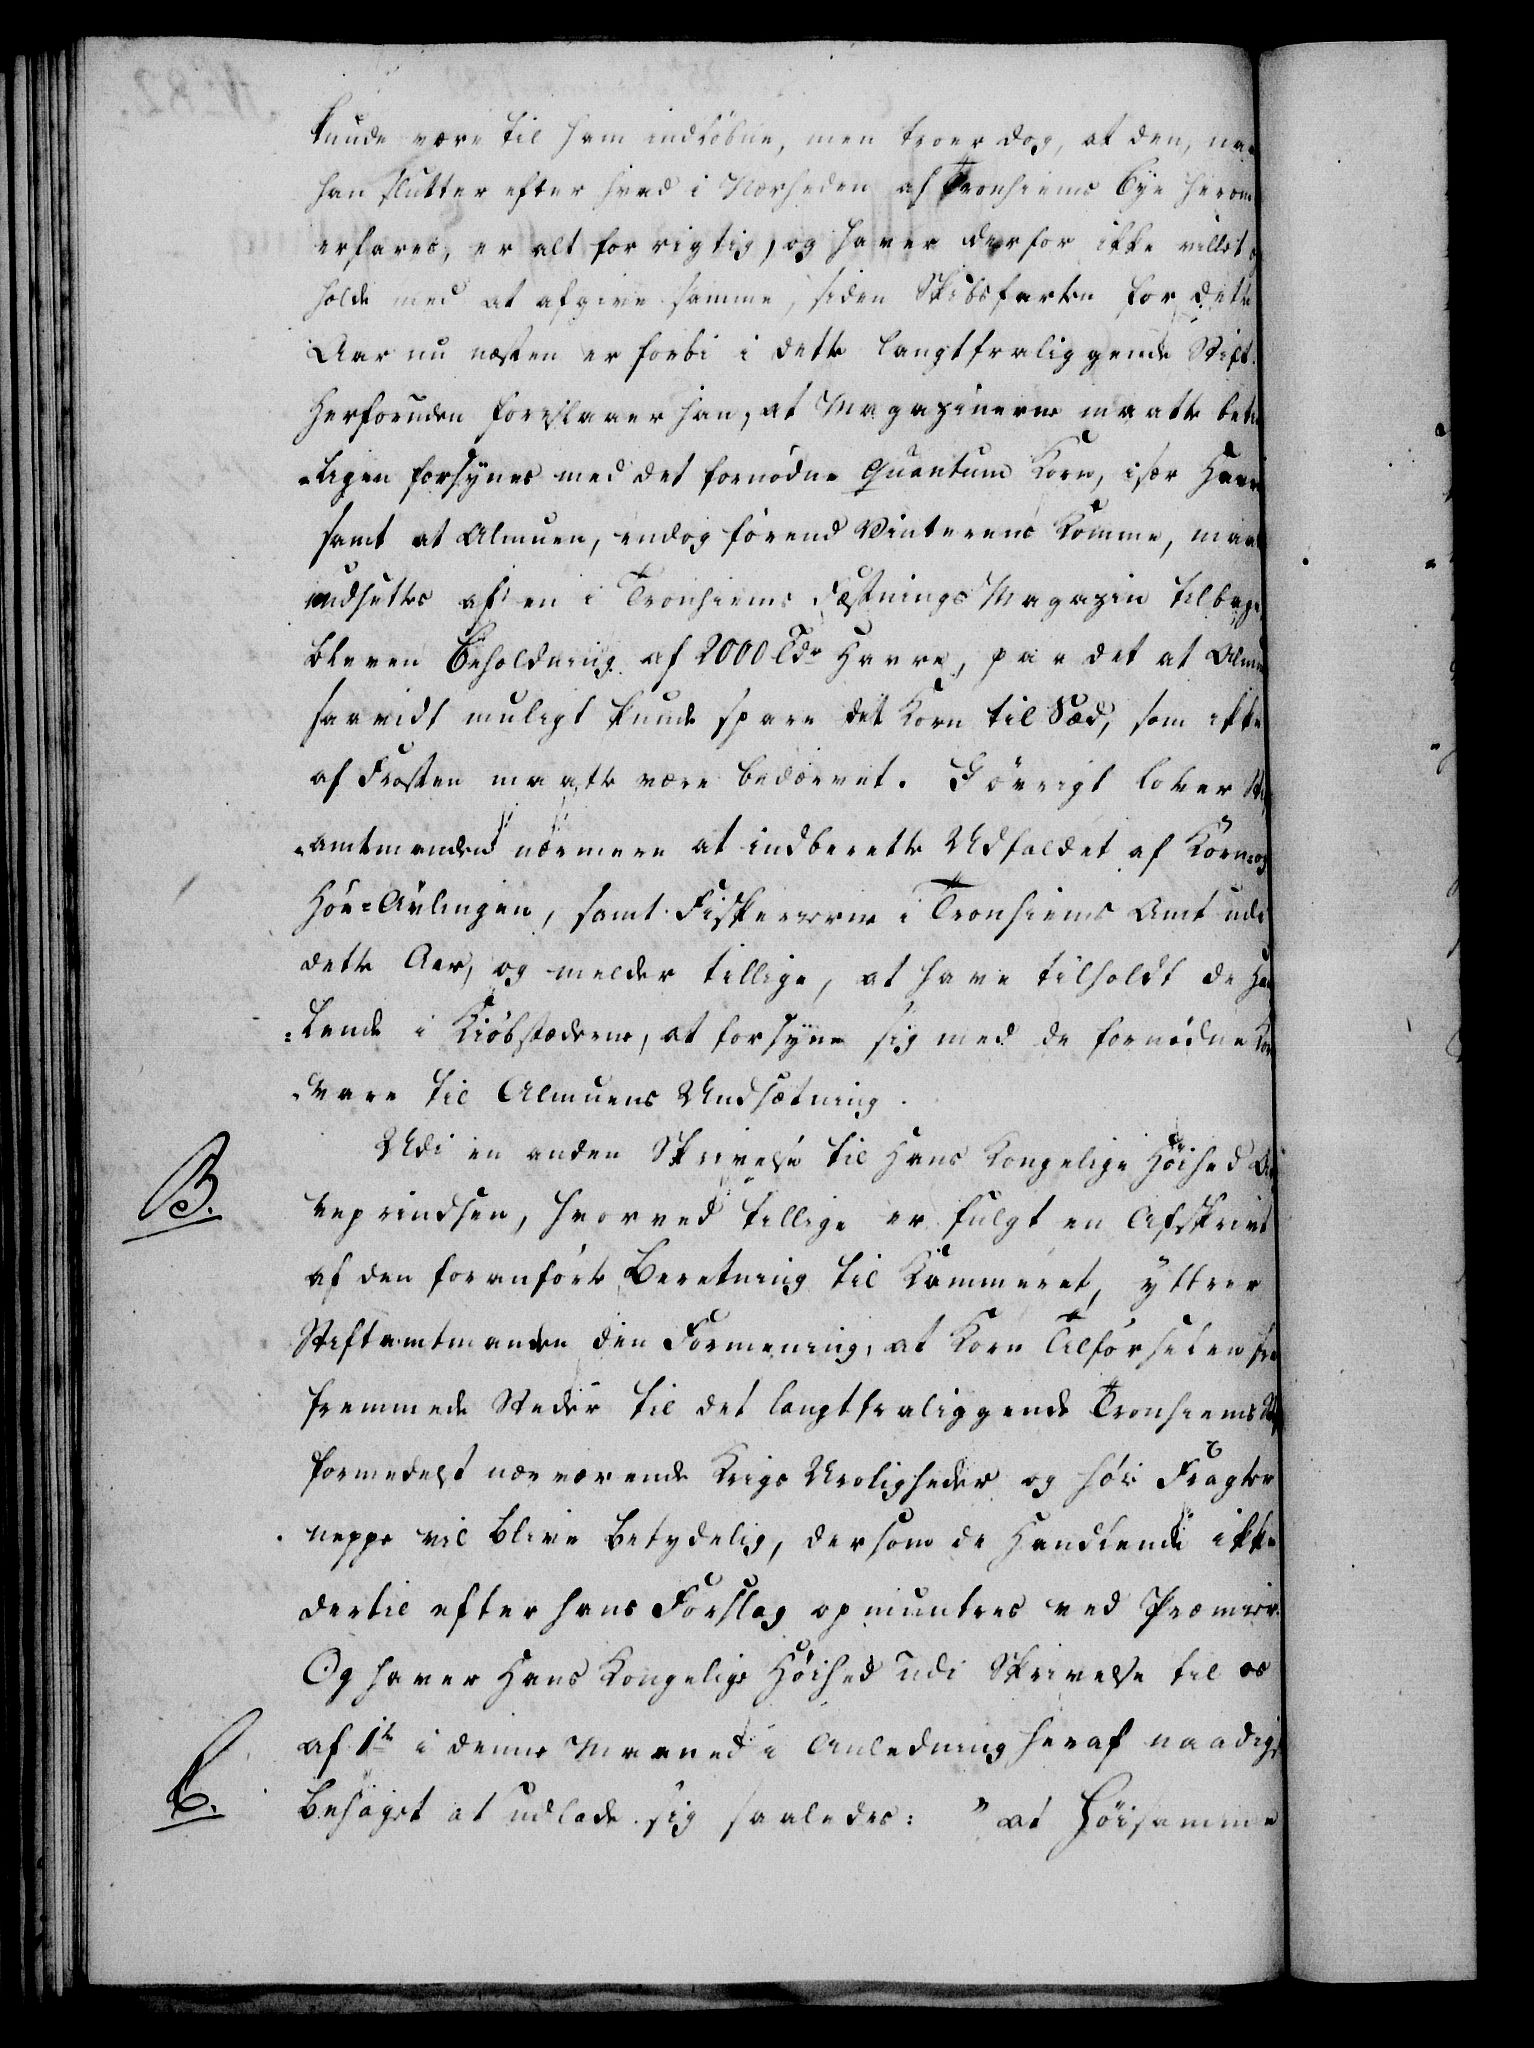 kunde være til ham indløbne, men troer dog, at den, naar
han slutter efter hvad i Nærheden af Tronhiems Bye herom
erfares, er alt for rigtig, og haver derfor ikke villet
holde med at afgive samme, siden Skibsfarten for dette
Aar nu næsten er forbi i dette langtfraliggende Stift.
Herforuden foreslaaer han, at Magazinerne maatte bete
-ligen forsynes med det fornødne Quantum Korn, især Havre
samt at Almuen, endog førend Vinterens Komme, maatte
undsættes af en i Tronhiems Fæstnings Magazin tilbage
bleven Beholdning af 2000 Tdr Havre, paa det at Almuen
saavidt muligt kunde spare det Korn til Sæd, som ikke
af Frosten maatte være bedærvet. I øvrigt lover Stift
-amtmanden nærmere at indberette Udfaldet af Korn- og
Høe-Avlingen, samt Fiskerierne i Tronhiems Amt udi
dette Aar, og melder tillige, at have tilholdt de Hand
-lende i Kiøbstæderne, at forsyne sig med de fornødne Korn
-vare til Almuens Undsætning.
B. Udi en anden Skrivelse til Hans Kongelige Høihed Ar
veprindsen, hvorved tillige er fulgt en Afskrivt
af den foranførte Beretning til Kammeret, yttrer
Stiftamtmanden den Formening, at Korn Tilførselen fra
fremmede Steder til det langtfraliggende Tronhiems Stift
formedelst nærværende Krigs Uroligheder og høie Fragter
neppe vil blive betydelig, dersom de Handlende ikke
dertil efter hans Forslag opmuntres ved Præmier.
Og haver Hans Kongelige Høihed udi Skrivelse til os
C. af 1te i denne Maaned i Anledning heraf naadigst
behaget at udlade sig saaledes: "at Høisamme